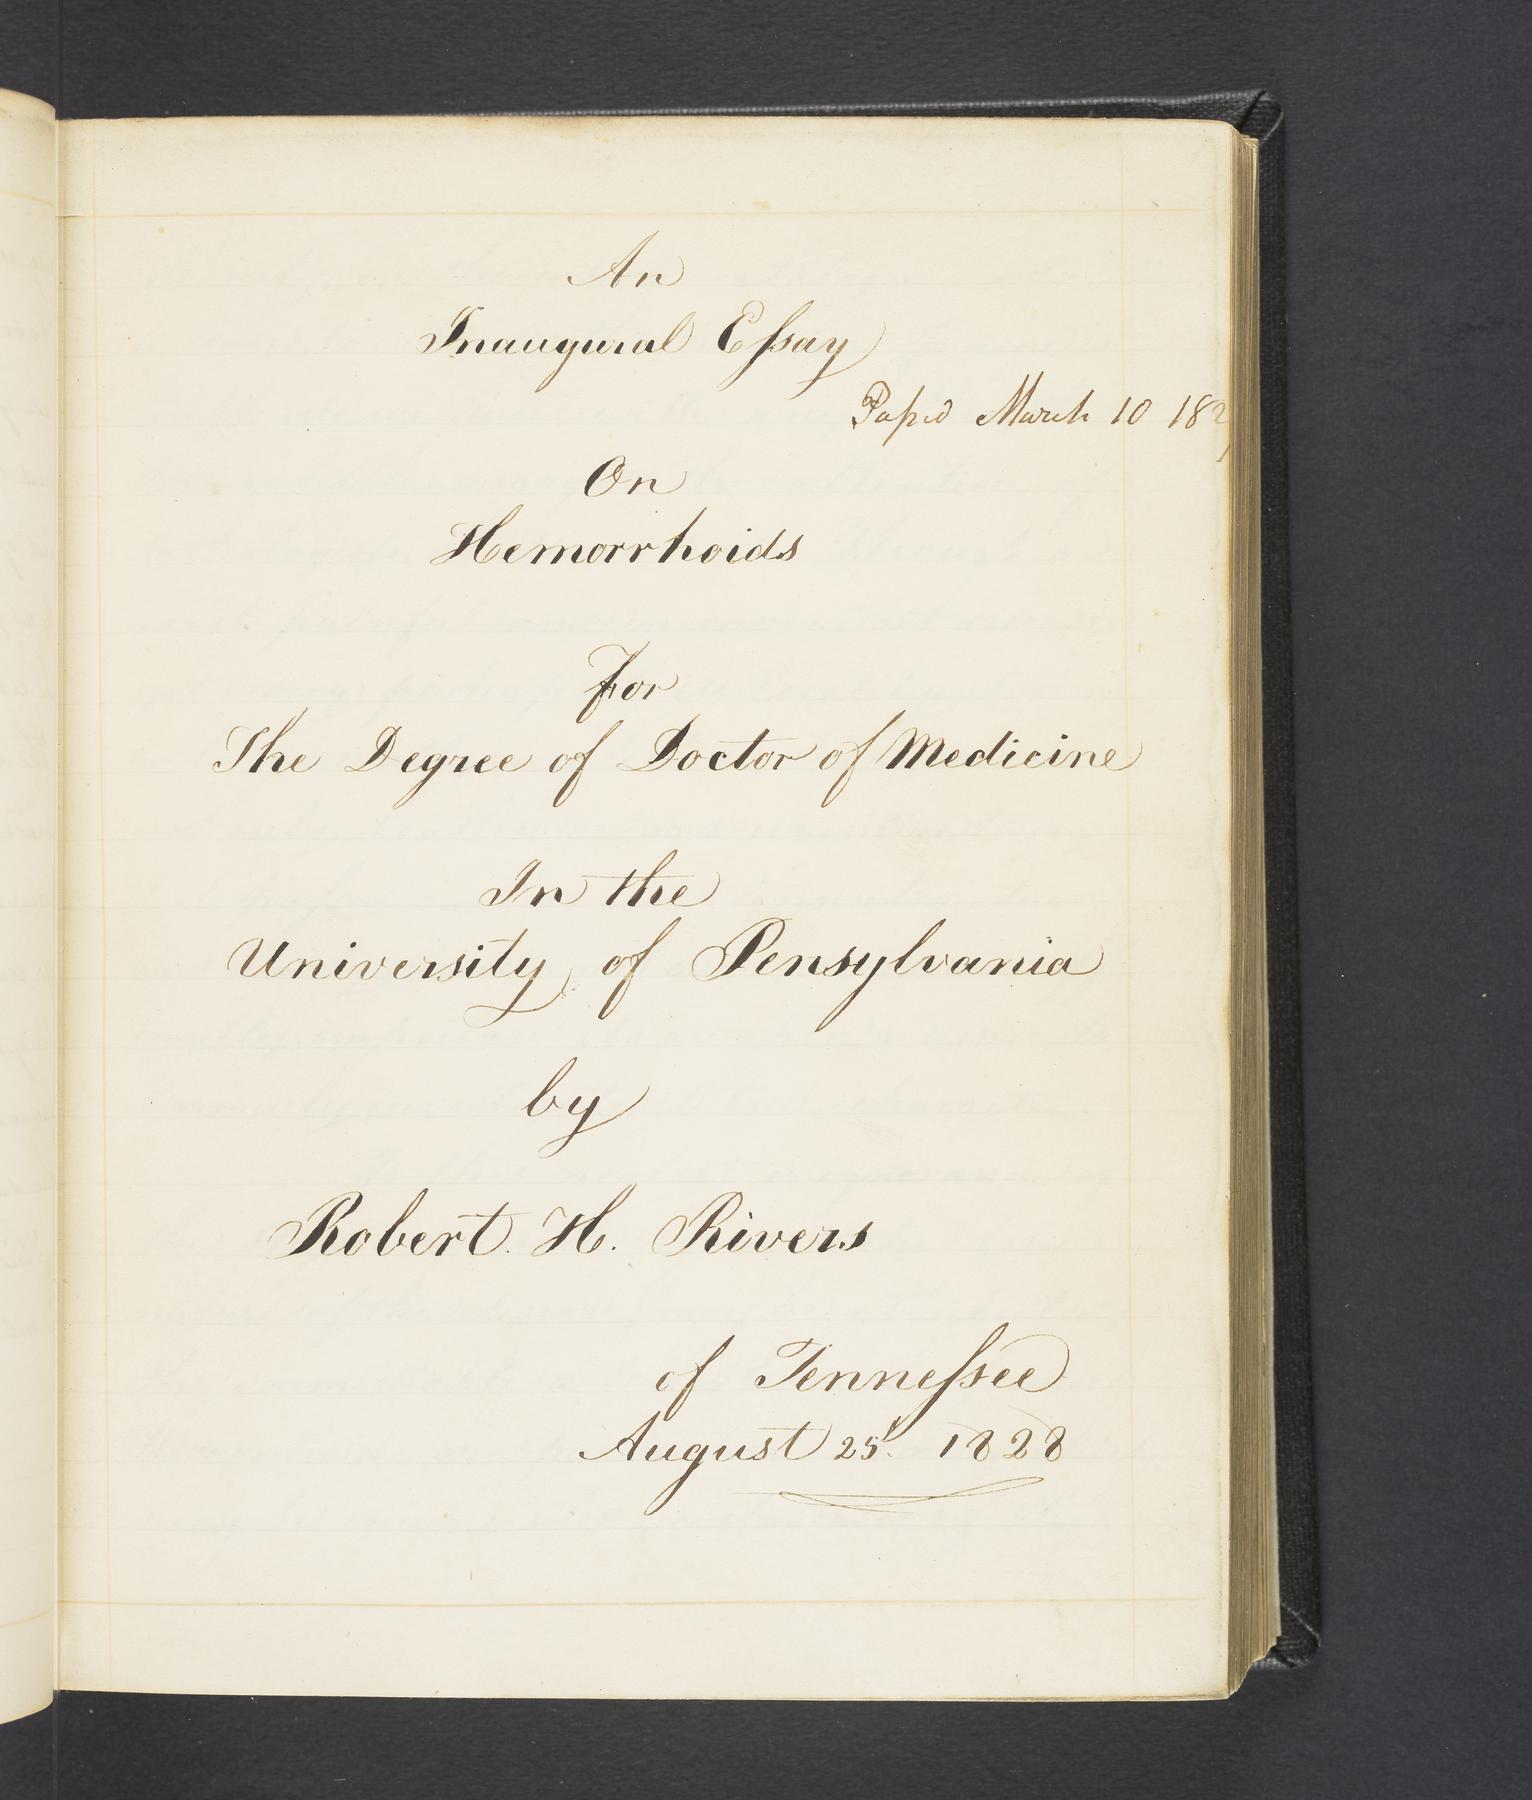 An
Inaugural Eſsay
Paſsed March 10 182
On
Hemorrhoids
For
The Degree of Doctor of Medicine
In the
University of Pensylvania
by
Robert. H. Rivers
of Tenneſsee
August 25t. 1828